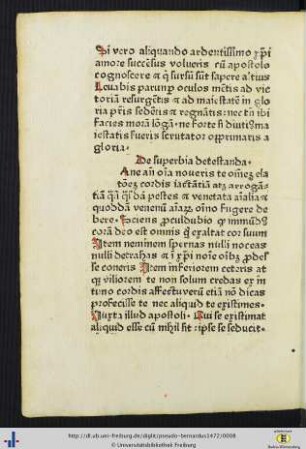 Si vero aliquando ardentissimo xp̄i
amore succēsus volueris cū apostolo
cognoscere ⁊ q̄ sursū sūt sapere altius
Leuabis parump oculos mētis ad vic
toriā resurgētis ⁊ ad maiestatē in glo
ria pr̄is sedētis ⁊ regnātis: nec tn̄ ibi
facies morā lōgā · ne forte si diuti⁹ ma
iestatis fueris scrutator opprimaris a
gloria ·
De superbia detestanda ·
Ane an̄ oīa noueris te om̄ez ela
tōez cordis iactātiā atqz arrogā
tiā q̄si q̄sdā pestes ⁊ venenata aīalia ⁊
quoddā venenū aīarz oīno fugere de
bere · Sciens proculdubio q̄ immūd⁹
corā deo est omnis q̄ exaltat cor suum
Item neminem spernas nulli noceas
nulli detrahas ⁊ ī xp̄i noīe oībz prodes
se coneris Item inferiorem ceteris at
qz viliorem te non solum credas ex in
timo cordis affectu verū etiā nō dicas
profecisse te nec aliquid te existimes ·
Iuxta illud apostoli · Qui se existimat
aliquid esse cū nihil sit ripse se seducit ·
http://dl.ub.uni-freiburg.de/diglit/pseudo-bernardus1472/0008
© Universitätsbibliothek Freiburg